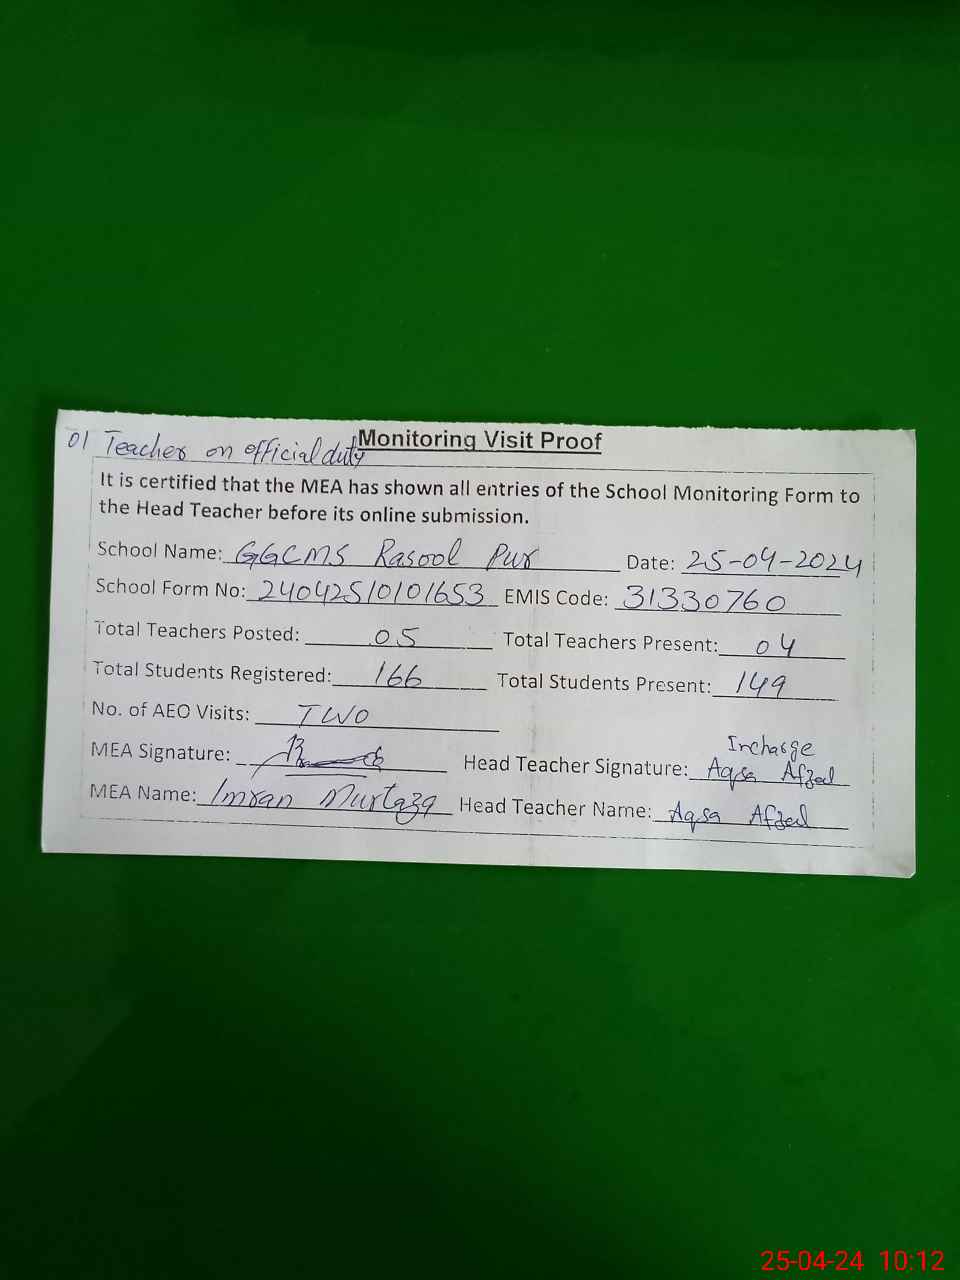 01 Teacher on official duty
Monitoring Visit Proof
It is certified that the MEA has shown all entries of the School Monitoring Form to
the Head Teacher before its online submission.
School Name: GGCMS Rasool Pur Date: 25-04-2024
School Form No: 24042510101653 EMIS Code: 31330760
Total Teachers Posted: 05 Total Teachers Present: 04
Total Students Registered: 166 Total Students Present: 149
No. of AEO Visits: TWO
Incharge
MEA Signature: Head Teacher Signature: Aqsa Afzal
MEA Name: Imran Murtaza Head Teacher Name: Aqsa Afzal
25-04-24 10:12